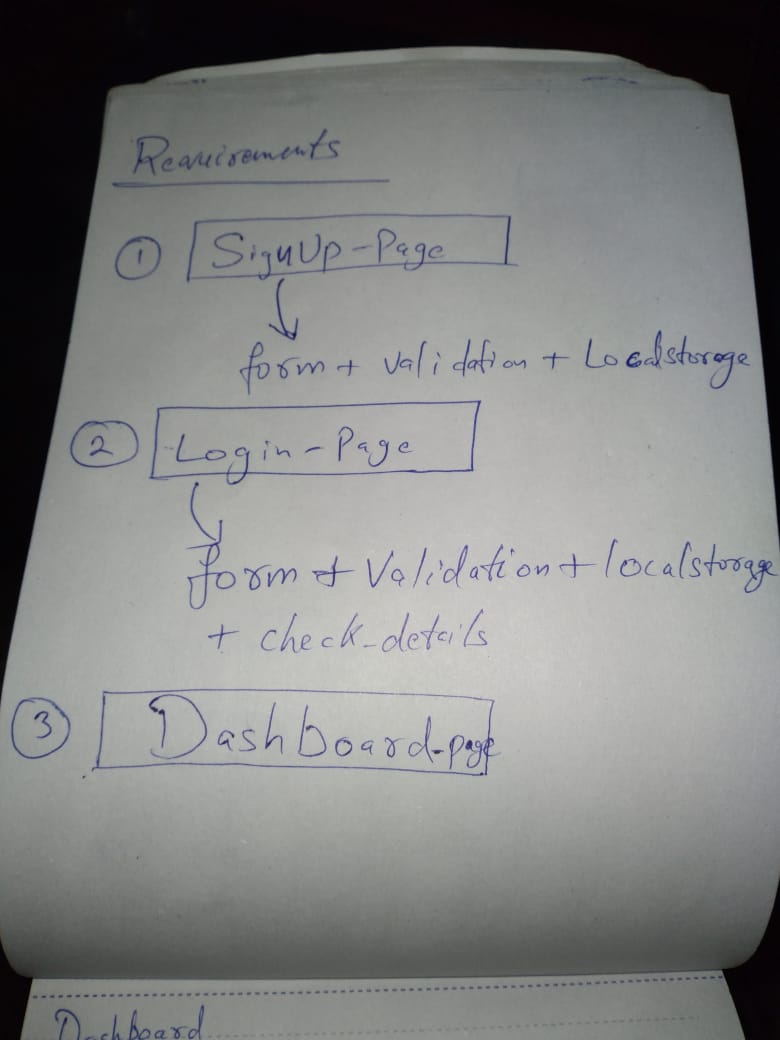 Requirements
1 SignUp-Page
form + validation + Localstorage
2 Login-Page
form + Validation + localstorage
+ check-details
3 Dashboard-page
Dashboard